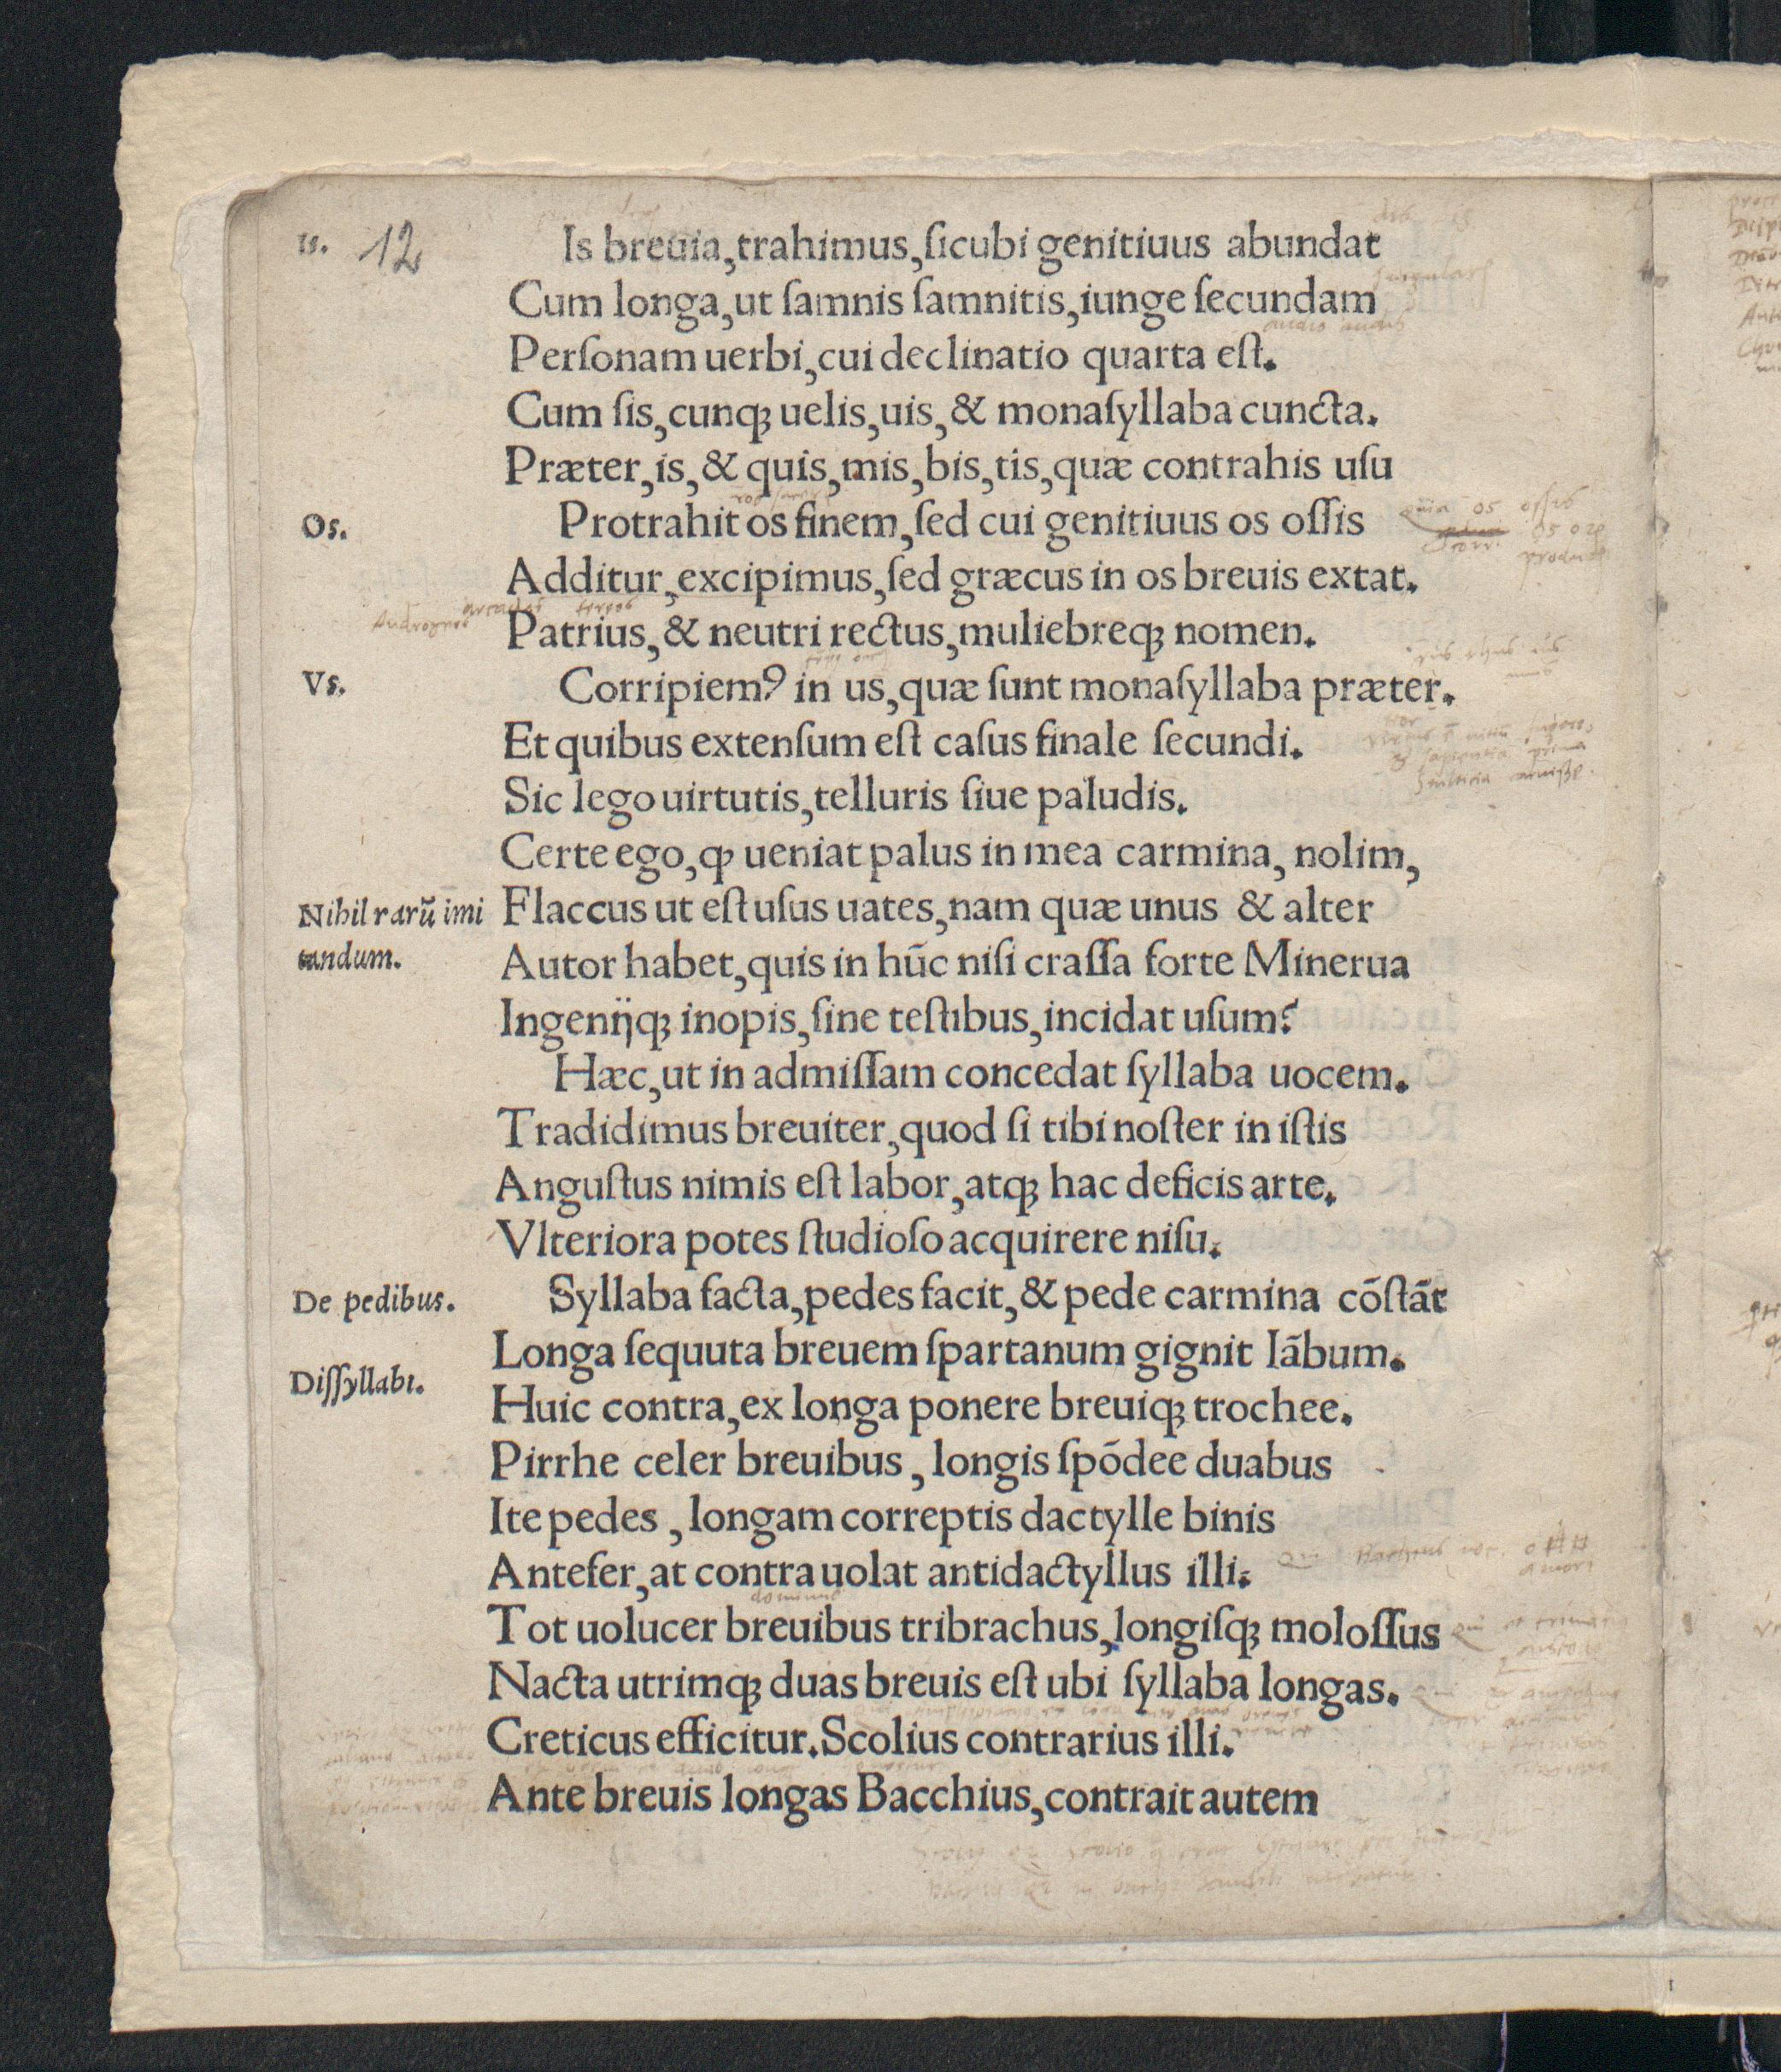 is. 12 Is breuia, trahimus, ſicubi genitiuus abundat
Cum longa, ut ſamnis ſamnitis, iunge ſecundam
Perſonam uerbi, cui declinatio quarta eſt.
Cum ſis, cunqꝫ uelis, uis, & monaſyllaba cuncta.
Præter, is, & quis, mis, bis, tis, quæ contrahis uſu
Os. Protrahit os finem, ſed cui genitiuus os oſſis
Additur, excipimus, ſed græcus in os breuis extat.
Patrius, & neutri rectus, muliebreqꝫ nomen.
Vs. Corripiemꝰ in us, quæ ſunt monaſyllaba præter.
Et quibus extenſum eſt caſus finale ſecundi.
Sic lego uirtutis, telluris ſiue paludis.
Certe ego, ꝙ ueniat palus in mea carmina, nolim,
Nihil rarũ imi Flaccus ut eſt uſus uates, nam quæ unus & alter
tandum. Autor habet, quis in hũc niſi craſſa forte Minerua
Ingenijqꝫ inopis, ſine teſtibus, incidat uſum?
Hæc, ut in admiſſam concedat ſyllaba uocem.
Tradidimus breuiter, quod ſi tibi noſter in iſtis
Anguſtus nimis eſt labor, atqꝫ hac deficis arte.
Vlteriora potes ſtudioſo acquirere niſu.
De pedibus. Syllaba facta, pedes facit, & pede carmina cõſtãt
Longa ſequuta breuem ſpartanum gignit Iãbum.
Diſſyllabi.
Huic contra, ex longa ponere breuiqꝫ trochee.
Pirrhe celer breuibus, longis ſpõdee duabus
Ite pedes, longam correptis dactylle binis
Antefer, at contra uolat antidactyllus illi.
Tot uolucer breuibus tribrachus, longiſqꝫ moloſſus
Nacta utrimqꝫ duas breuis eſt ubi ſyllaba longas.
Creticus efficitur. Scolius contrarius illi.
Ante breuis longas Bacchius, contrait autem